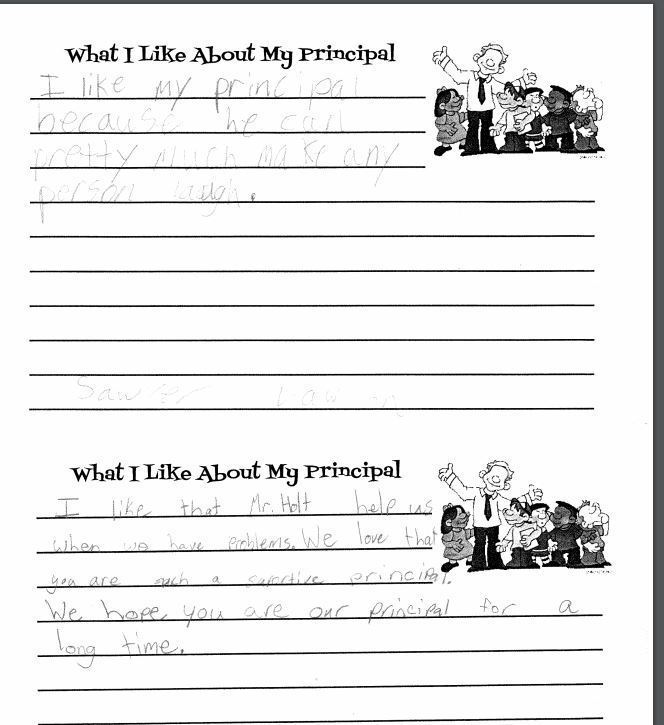 What I Like About My Principal
I like my principal
because he can
pretty much make any
person laugh.
Sawyer
What I Like About My Principal
I like that Mr. Holt help us
when we have problems. We love that
you are such a suportive principal.
We hope you are our principal for a
long time.